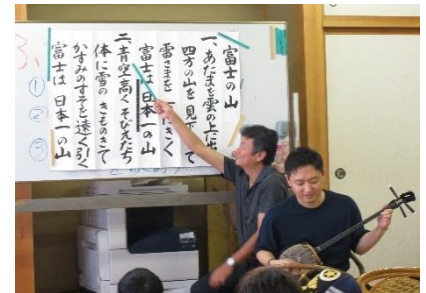 富士の山
一、あたまを雲の上に出
四方の山を見下
雷さまを にきく
富士は日本一の山
二、青空高くそびえたち
体に雪の きものきて
かすみのすそを遠く引く
富士は 日本一の山
①
②
③